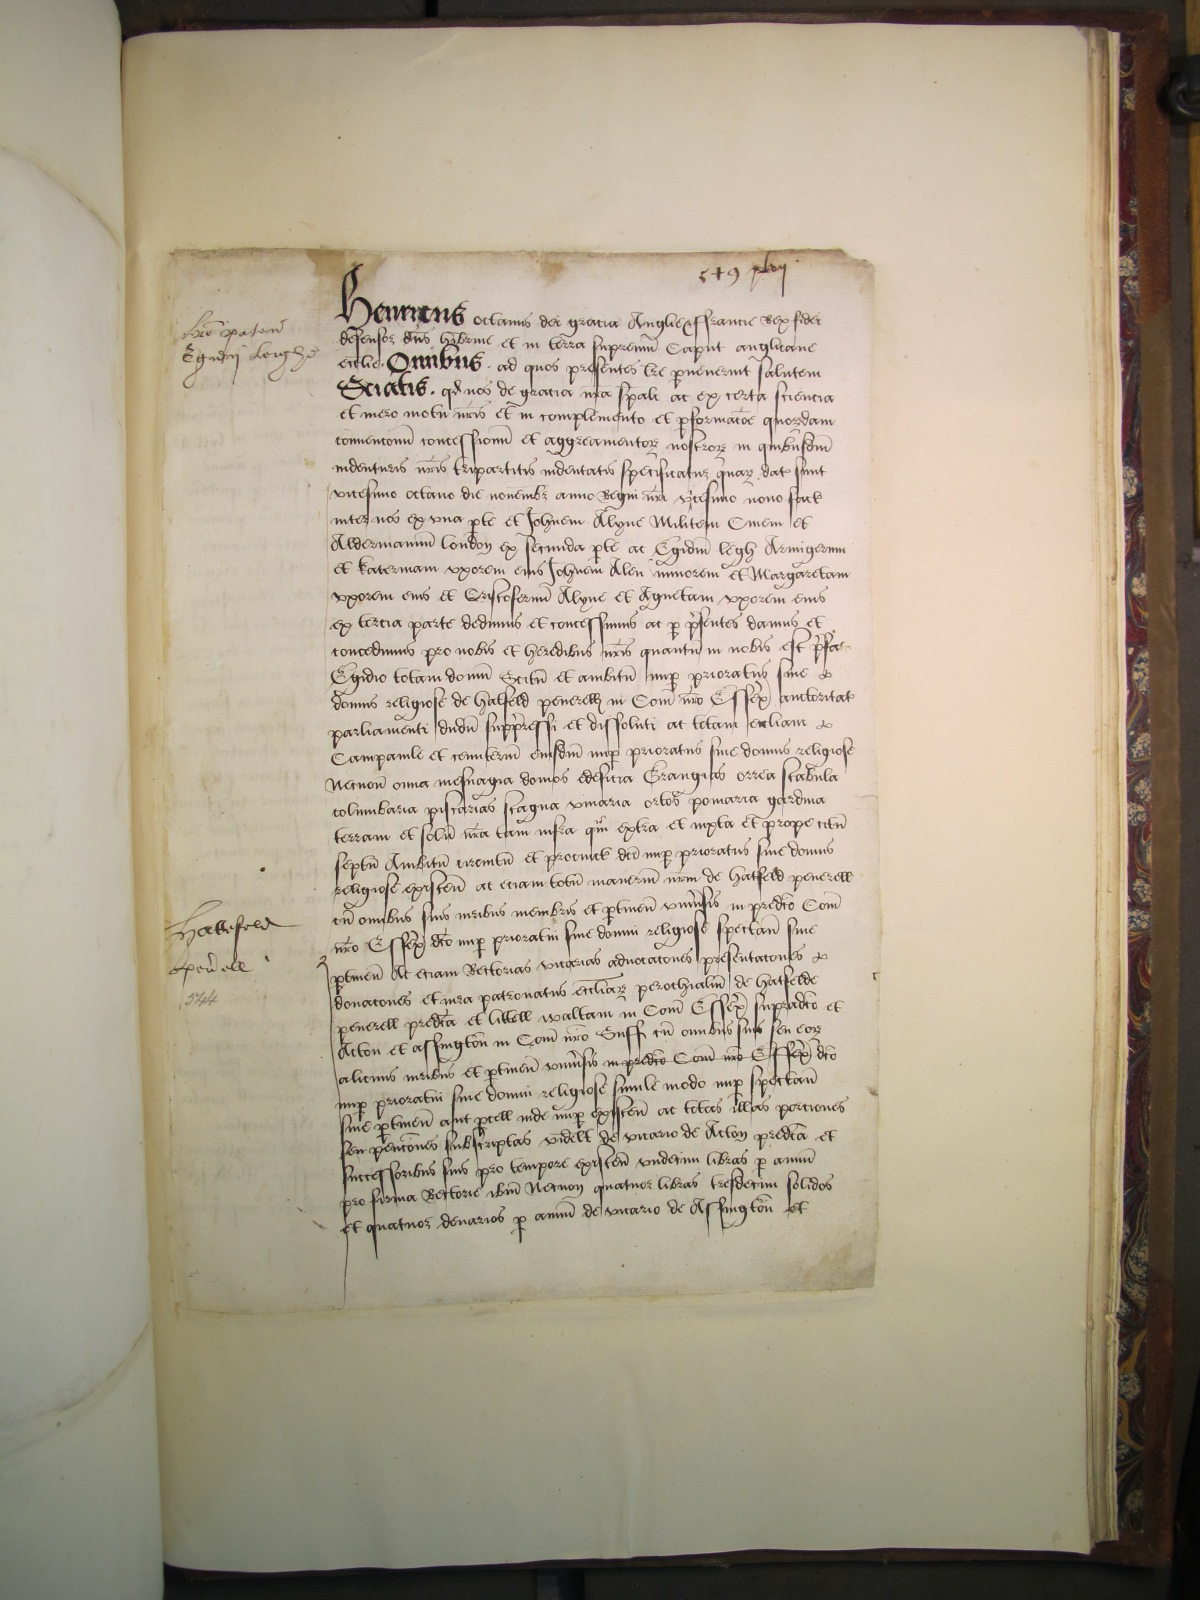 549 xlvij
Henricus octauus dei gracia Anglie & Francie Rex fidei
lre paten
defensor dns hibernie et in terra supremu Caput anglicane
Egidij Leighe
ecclie Omnibus ad quos presentes lre peruenerint salutem
Sciatis qd nos de gracia nra spali ac ex certa sciencia
et mero motu nris et in complemento et pformacoe quordam
conuencionu concessionu et aggreamentor nostror in quibusdm
indenturis nris tripartitis indentatis specificatur quar dat sunt
vicesimo octauo die nouembr anno Regni nri vicesimo nono fact
inter nos ex vna pte et Johnem Alyne Militem Ciuem et
Aldermannu london ex secunda pte ac Egidiu legh Armigerum
et katerinam vxorem eius Johnem Alen iuniorem et Margaretam
vxorem eius et Cristoferum Alyne et Agnetam vxorem eius
ex tercia parte dedimus et concessimus ac p psentes damus et
concedimus pro nobis et heredibus nris quantu in nobis est pfat
Egidio totam domu Scitu et ambitu nup prioratus siue
domus religiose de hatfeld peuerell in Com nro Essex auctoritat
parliamenti dudu suppressi et dissoluti ac totam eccliam
Campanile et cemiteriu eiusdm nup prioratus siue domus religiose
Necnon omia mesuagia domos edificia Grangias orrea stabula
columbaria piscarias stagna vinaria ortos pomaria gardina
terram et solu nra tam infra qm extra et iuxta et prope situ
septu Ambitu circuitu et procinct dci nup prioratus siue domus
religiose existen ac eciam totu maneriu nrm de hatfeld peuerell
Hattefeld
cu omibus suis iuribus membris et ptinen vniusis in predco Com
nro Essex dco nup prioratui siue domui religiose spectan siue
peuell
ptinen Ac eciam Rectorias vicarias aduocacones presentacones
donacones et iura patronatus eccliar perochialiu de hatfelde
3744
peuerell predca et litell waltam in Com Essex supradco et
Acton et assington in Com nro Suff cu omibus suis seu eor
alicuius iuribus et ptinen vniusis in predco Com nro Essex dco
nup prioratui siue domui religiose simile modo nup spectan
siue ptinen aut pcell inde nup existen ac totas illas porciones
seu pencones subscriptas videlt de vicario de Acton predca et
successoribus suis pro tempore existen vndecim libras p annu
pro firma Rectorie ibm Necnon quatuor libras tresdecim solidos
et quatuor denarios p annu de vicario de Assington et